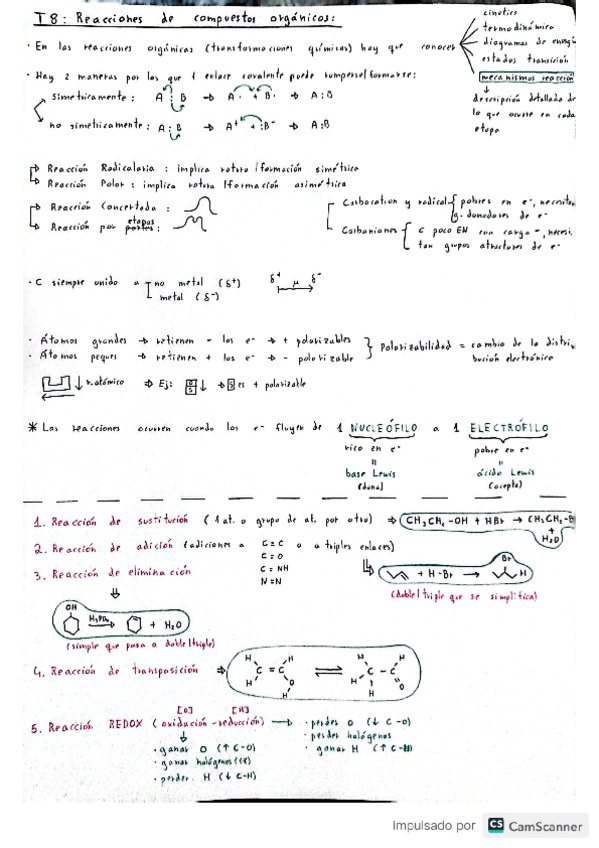 T8: Reacciones de compuestos orgánicos:
· En las reacciones orgánicas (transformaciones químicas) hay que conocer
cinética
termodinámica
diagramas de energía
estados transición
mecanismos reacción
descripción detallada de
lo que ocurre en cada
etapa
· Hay 2 maneras por las que 1 enlace covalente puede romperse/formarse:
simétricamente: A : B → A· + B· → A:B
no simétricamente: A : B → A+ + :B- → A:B
Reacción Radicalaria: implica rotura/formación simétrica
Reacción Polar: implica rotura/formación asimétrica
Reacción Concertada:
Reacción por etapas:
Carbocation y radical { pobres en e-, necesitan
g. donadores de e-
Carbaniones { C poco EN con carga -, necesi.
tan grupos atractores de e-
· C siempre unido a no metal (δ+)
metal (δ-)
δ+ μ δ-
· Átomos grandes → retienen - los e- → + polarizables
· Átomos peques → retienen + los e- → - polarizable
Polarizabilidad = cambio de la distri
bución electrónica
r. atómico ⇒ Ej: O S ↓ → S es + polarizable
* Las reacciones ocurren cuando los e- fluyen de 1 NUCLEÓFILO a 1 ELECTRÓFILO
rico en e- pobre en e-
= =
base Lewis ácido Lewis
(dona) (acepta)
1. Reacción de sustitución (1 at. o grupo de at. por otro) ⇒ CH3CH2-OH + HBr → CH3CH2-B
+
H2O
2. Reacción de adición (adiciones a C=C o a triples enlaces)
C=O
C=NH
N=N
+ H-Br → Br H
(doble/triple que se simplifica)
3. Reacción de eliminación
OH H3PO4 → + H2O
(simple que pasa a doble/triple)
4. Reacción de transposición ⇒
H H C=C H O H ⇌ H H H C-C H O
5. Reacción REDOX (oxidación-reducción)
[O] [H]
· ganar O (↑ C-O)
· ganar halógenos
· perder H (↓ C-H)
· perder O (↓ C-O)
· perder halógenos
· ganar H (↑ C-H)
Impulsado por CS CamScanner